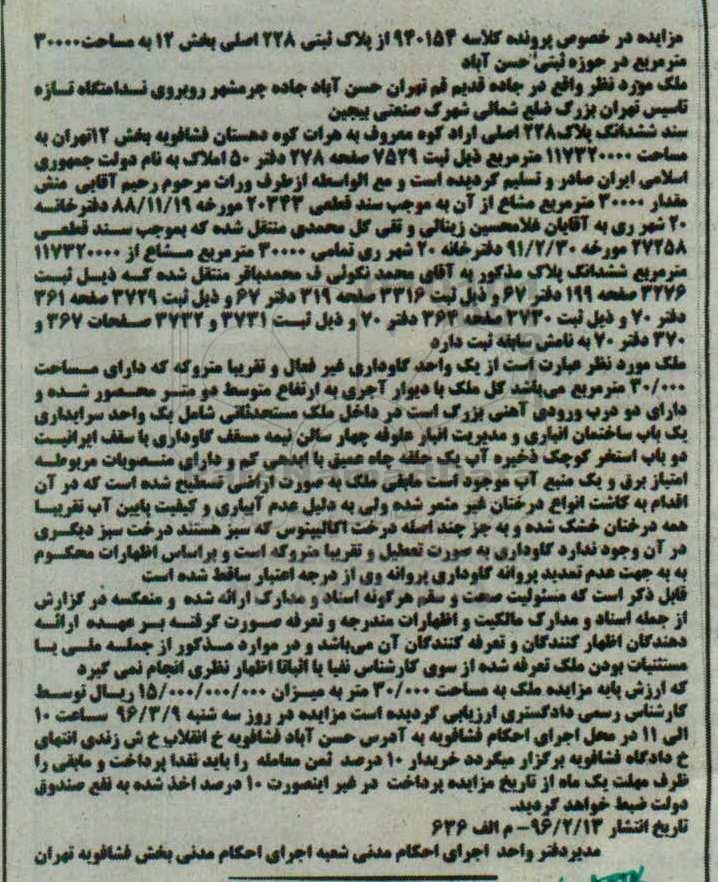 مزایده در خصوص پرونده کلاسه ۹۴۰۱۵۴ از پلاک ثبتی ۲۲۸ اصلی بخش ۱۲ به مساحت ۳۰۰۰۰
مترمربع در حوزه ثبتی حسن آباد
ملک مورد نظر واقع در جاده قدیم قم تهران حسن آباد جاده چرمشهر روبروی ندامتگاه تازه
تاسیس تهران بزرگ ضلع شمالی شهرک صنعتی بیجین
سند ششدانگ پلاک ۲۲۸ اصلی اراد کوه معروف به هرات کوه دهستان فشافویه بخش ۱۲تهران به
مساحت ۱۱۷۳۲۰۰۰۰ مترمربع ذیل ثبت ۷۵۲۹ صفحه ۲۷۸ دفتر ۵۰ املاک به نام دولت جمهوری
اسلامی ایران صادر و تسلیم گردیده است و مع الواسطه ازطرف وراث مرحوم رحیم آقایی منش
مقدار ۳۰۰۰۰ مترمربع مشاع از آن به موجب سند قطعی ۲۰۳۴۳ مورخه ۸۸/۱۱/۱۹ دفترخانه
۲۰ شهر ری به آقایان غلامحسین زینالی و تقی گل محمدی منتقل شده که بموجب سند قطعی
۲۷۲۵۸ مورخه ۹۱/۲/۳۰ دفترخانه ۲۰ شهر ری تمامی ۳۰۰۰۰ مترمربع مشاع از ۱۱۷۳۲۰۰۰۰
مترمربع ششدانگ پلاک مذکور به آقای محمد نکوئی ف محمدباقر منتقل شده که ذیل ثبت
۳۲۷۶ صفحه ۱۹۹ دفتر ۶۷ و ذیل ثبت ۳۳۱۶ صفحه ۳۱۹ دفتر ۶۷ و ذیل ثبت ۳۷۲۹ صفحه ۳۶۱
دفتر ۷۰ و ذیل ثبت ۳۷۳۰ صفحه ۳۶۴ دفتر ۷۰ و ذیل ثبت ۳۷۳۱ و ۳۷۳۲ صفحات ۳۶۷ و
۳۷۰ دفتر ۷۰ به نامش سابقه ثبت دارد
ملک مورد نظر عبارت است از یک واحد گاوداری غیر فعال و تقریبا متروکه که دارای مساحت
۳۰/۰۰۰ مترمربع می‌باشد کل ملک با دیوار آجری به ارتفاع متوسط دو متر محصور شده و
دارای دو درب ورودی آهنی بزرگ است در داخل ملک مستحدثاتی شامل یک واحد سرایداری
یک باب ساختمان انباری و مدیریت انبار علوفه چهار سالن نیمه مسقف گاوداری با سقف ایرانیت
دو باب استخر کوچک ذخیره آب یک حلقه چاه عمیق با ابدهی کم و دارای منصوبات مربوطه
امتیاز برق و یک منبع آب موجود است مابقی ملک به صورت اراضی تسطیح شده است که در آن
اقدام به کاشت انواع درختان غیر مثمر شده ولی به دلیل عدم آبیاری و کیفیت پایین آب تقریبا
همه درختان خشک شده و به جز چند اصله درخت اکالیپتوس که سبز هستند درخت سبز دیگری
در آن وجود ندارد گاوداری به صورت تعطیل و تقریبا متروکه است و براساس اظهارات محکوم
به به جهت عدم تمدید پروانه گاوداری پروانه وی از درجه اعتبار ساقط شده است
قابل ذکر است که مسئولیت صحت و سقم هرگونه اسناد و مدارک ارائه شده و منعکسه در گزارش
از جمله اسناد و مدارک مالکیت و اظهارات مندرجه و تعرفه صورت گرفته بر عهده ارائه
دهندگان اظهار کنندگان و تعرفه کنندگان آن می‌باشد و در موارد مذکور از جمله ملی یا
مستثنیات بودن ملک تعرفه شده از سوی کارشناس نفیا یا اثباتا اظهار نظری انجام نمی گیرد
که ارزش پایه مزایده ملک به مساحت ۳۰/۰۰۰ متر به میزان ۱۵/۰۰۰/۰۰۰/۰۰۰ ریال توسط
کارشناس رسمی دادگستری ارزیابی گردیده است مزایده در روز سه شنبه ۹۶/۳/۹ ساعت ۱۰
الی ۱۱ در محل اجرای احکام فشافویه به آدرس حسن آباد فشافویه خ انقلاب خ ش زندی انتهای
خ دادگاه فشافویه برگزار میگردد خریدار ۱۰ درصد ثمن معامله را باید نقدا پرداخت و مابقی را
ظرف مهلت یک ماه از تاریخ مزایده پرداخت در غیر اینصورت ۱۰ درصد اخذ شده به نفع صندوق
دولت ضبط خواهد گردید.
تاریخ انتشار ۹۶/۲/۱۳- م الف ۶۳۶
مدیردفتر واحد اجرای احکام مدنی شعبه اجرای احکام مدنی بخش فشافویه تهران